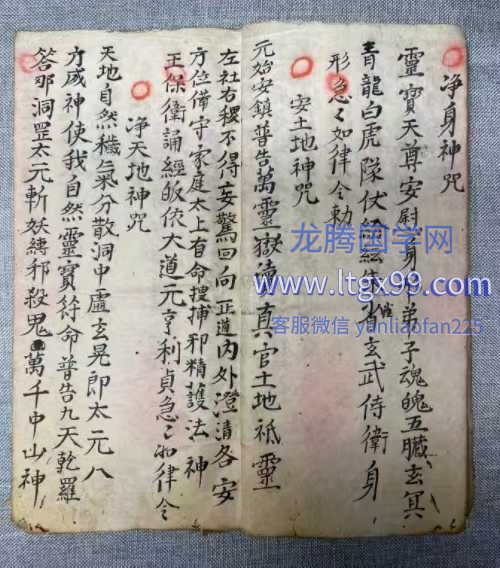 净身神咒
靈寶天尊安慰身形弟子魂魄五臟玄冥
青龍白虎隊伏紛紜朱雀玄武侍衛身
形急〻如律令勅
安土地神咒
元始安鎮普告萬靈嶽瀆真官土地祇靈
左社右稷不得妄驚回向正道内外澄清各安
方位備守家庭太上有命搜捕邪精護法神
王保衛誦經皈依大道元亨利貞急〻如律令
净天地神咒
天地自然穢氣分散洞中虛玄晃即太元八
方威神使我自然靈寶符命普告九天乾羅
答那洞罡太元斬妖縛邪殺鬼萬千中山神
龙腾国学网
www.ltgx99.com
客服微信 yanliaofan225